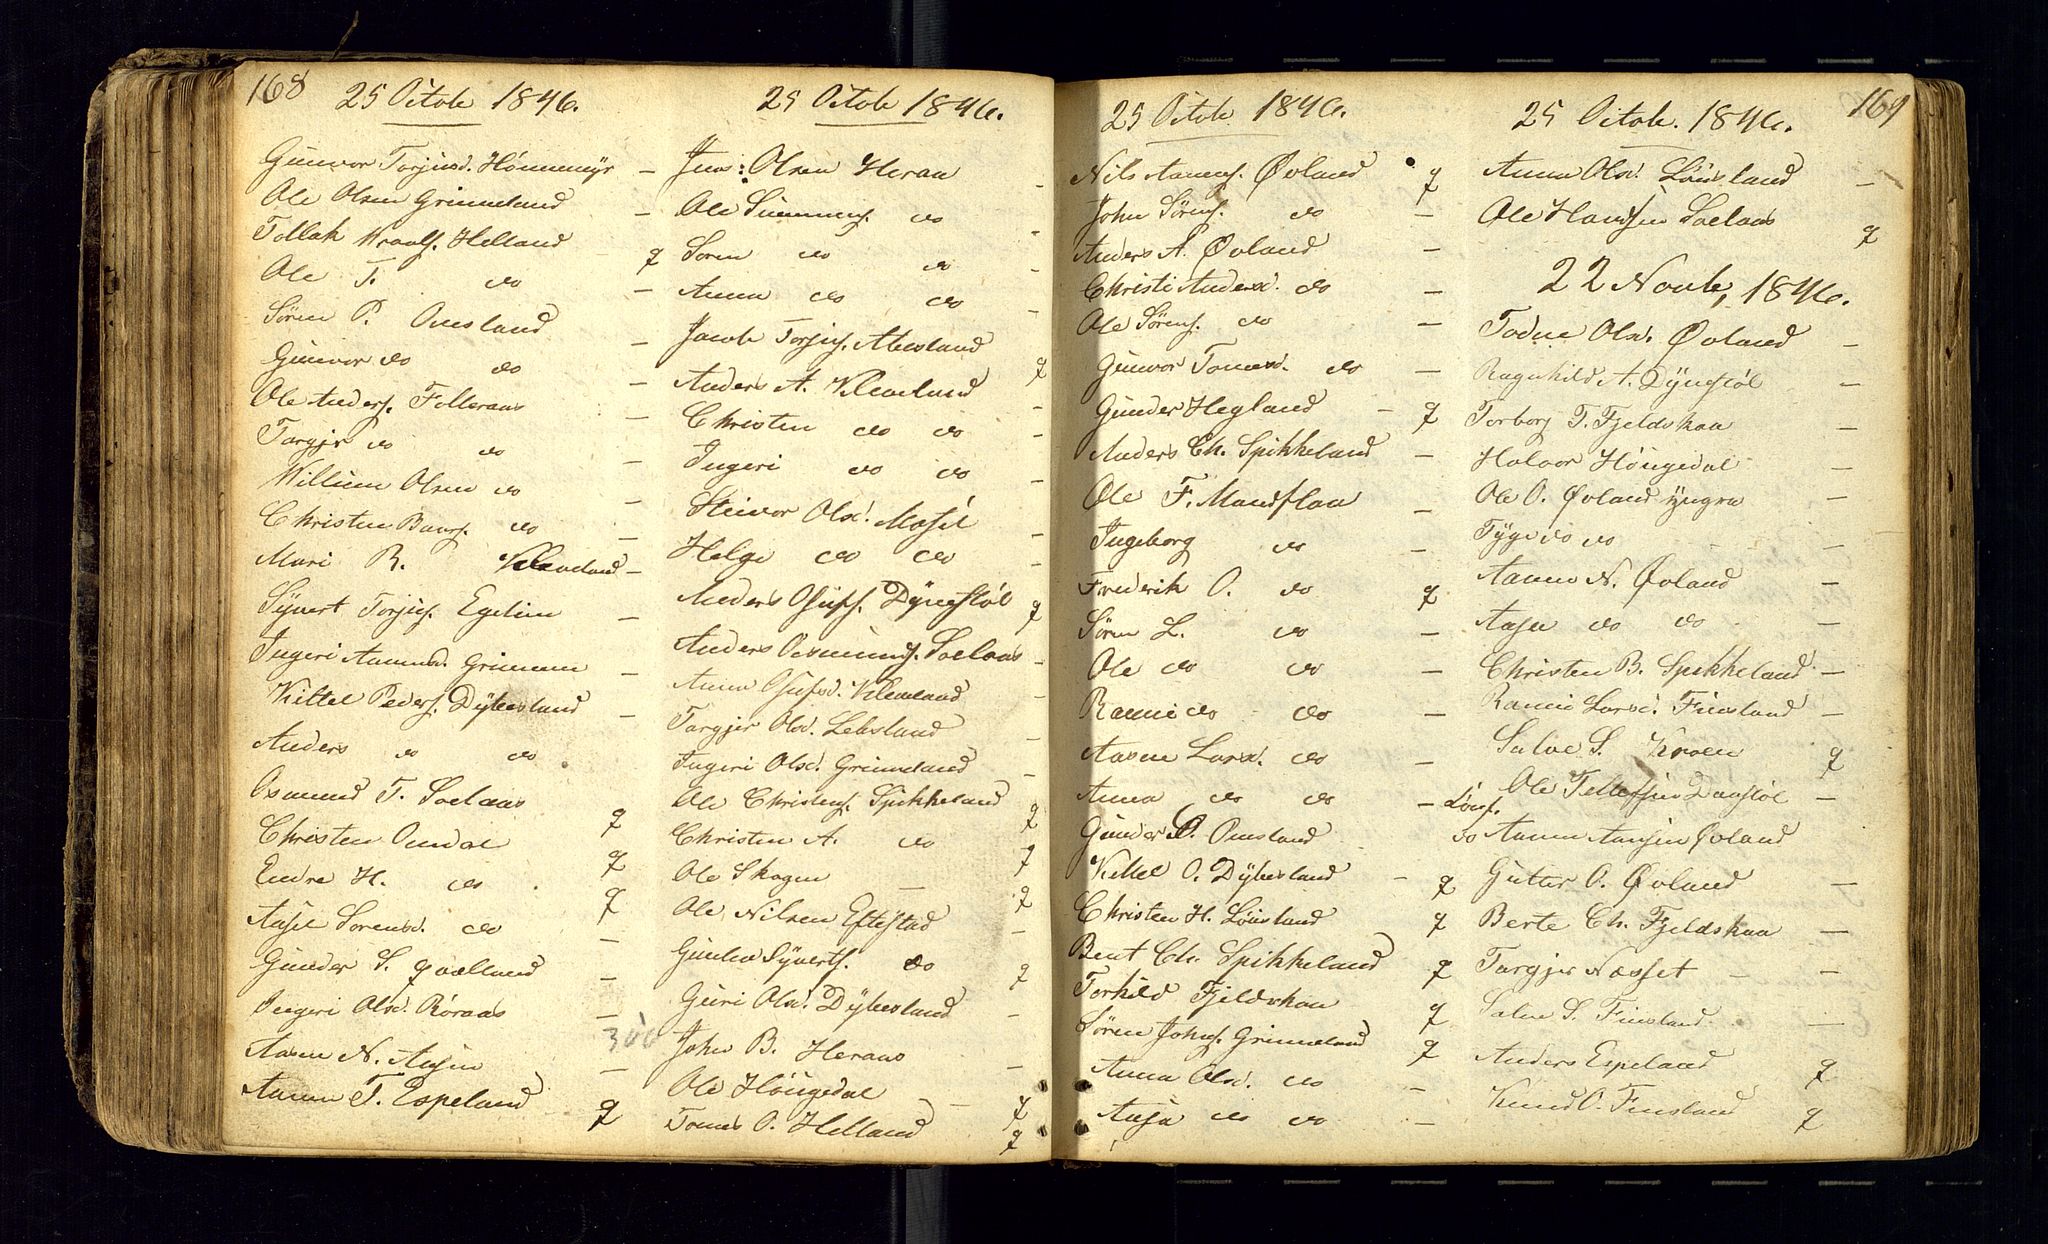 168
25 Octob 1846.
Gunvor Torjusd. Hönnemyr -
Ole Olsen Grinneland -
Tollak Wraals. Helland q
Ole T. do -
Sören P. Omsland -
Gunvor do do -
Ole Anders. Felleraas -
Torgjer do do -
Willum Olsen do -
Christen Bents. do -
Mari R. Kleveland -
Syvert Torjus. Egelim -
Ingeri Aanund. Grimenn -
Kittel Peders. Dybesland -
Anders do do
Osmund T. Soelaas q
Christen Omdal q
Endre H. do q
Aasel Sorensd. do -
Gunder S. qvælland -
Ingeri Olsd. Röraas -
Aasen N. -
Aanen T. Espeland q
25 Octob 1846.
Jens: Olsen Heraa -
Ole Simmens. do -
Soren do do -
Anna do do -
Jacob Torjus. Abesland q
Anders A. Kleveland -
Christen do do -
Ingeri do do -
Steivor Olsd. Mosjel -
Helge do do -
Anders Osufs. Dÿngstöl q
Anders Oesmunds. Soelaas -
Anna Osufsd. Kleveland -
Torgjer Olsd. Lebesland -
Ingeri Olsd. Grinneland -
Ole Christens. Spikkeland q
Christen A. do q
Ole Skogen - q
Ole Nilsen Eftestad -
Gunder Sÿverts. do q
Guri Olsd. Dÿbesland -
300
John B. Heraas -
Ole Höugedal - q
Tomes O. Helland q
25 Octob 1846.
Nils Aanens. Øvland q
John Sörens. do -
Anders A. Øvland -
Christi Andersd. do -
Ole Sörens. do -
Gunvor Tomesd. do -
Gunder Hegland - q
Anders Ch. Spikkeland -
Ole F. Mandflaa -
Ingeborg do -
Frederik O. do q
Sören L. do -
Ole do do -
Rannei do do -
Aasne Larsd. do -
Anna do do -
Gunder O. Omsland
Kittel O. Dÿbesland - q
Christen H. Löuisland q
Bent Ch. Spikkeland q
Torkild Fjeldskaa q
Sören Johns. Grinneland q
Anna Olsd. do -
Aasa do do -
169
25 Octob. 1846.
Anna Olsd. Löuisland -
Ole Hansen Soelaas q
22 Novb, 1846.
Todne Olsd. Øvland -
Ragnhild A. Dÿngstöl -
Torborg T. Fjeldskaa -
Halvor Höugedal -
Ole O. Øvland ÿngra -
Tÿge do do -
Aanen N. Øvland -
Aasa do do -
Christen B. Spikkeland -
Rannei Larsd. Finsland -
Salve S. Kroen q
Ole Tellefsen Daastöl -
do Aanen Aansen Øvland
Guttor O. Øvland -
Berte Ch. Fjeldskaa -
Torgjer Næsset - -
Salve S. Finsland -
Anders Espeland q
Knud O. Finsland q